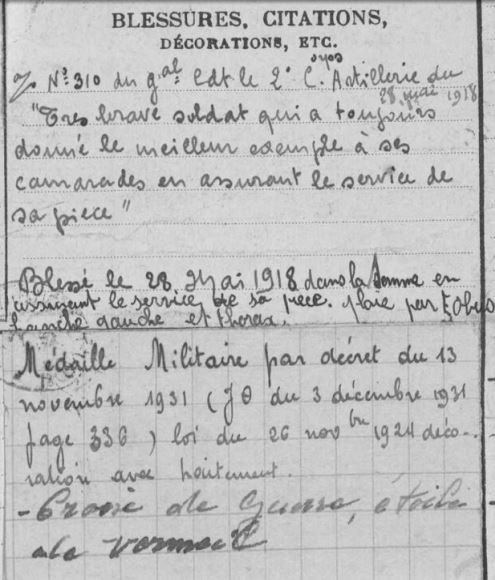 BLESSURES, CITATIONS,
DÉCORATIONS, ETC.
N° 310 du gal Cdt le 2e C. Artillerie du
28 mai 1918
"Tres brave soldat qui a toujours
donné le meilleur exemple à ses
camarades en assurant le service de
sa pièce"
Blessé le 28 Mai 1918 dans la Somme en
assurant le service de sa pièce. plaie par Obus
hanche gauche et thorax.
Médaille Militaire par décret du 13
novembre 1931 (JO du 3 décembre 1931
page 336) loi du 26 novbre 1924 déco-
ration avec traitement.
- Croix de Guerre, étoile
de vermeil